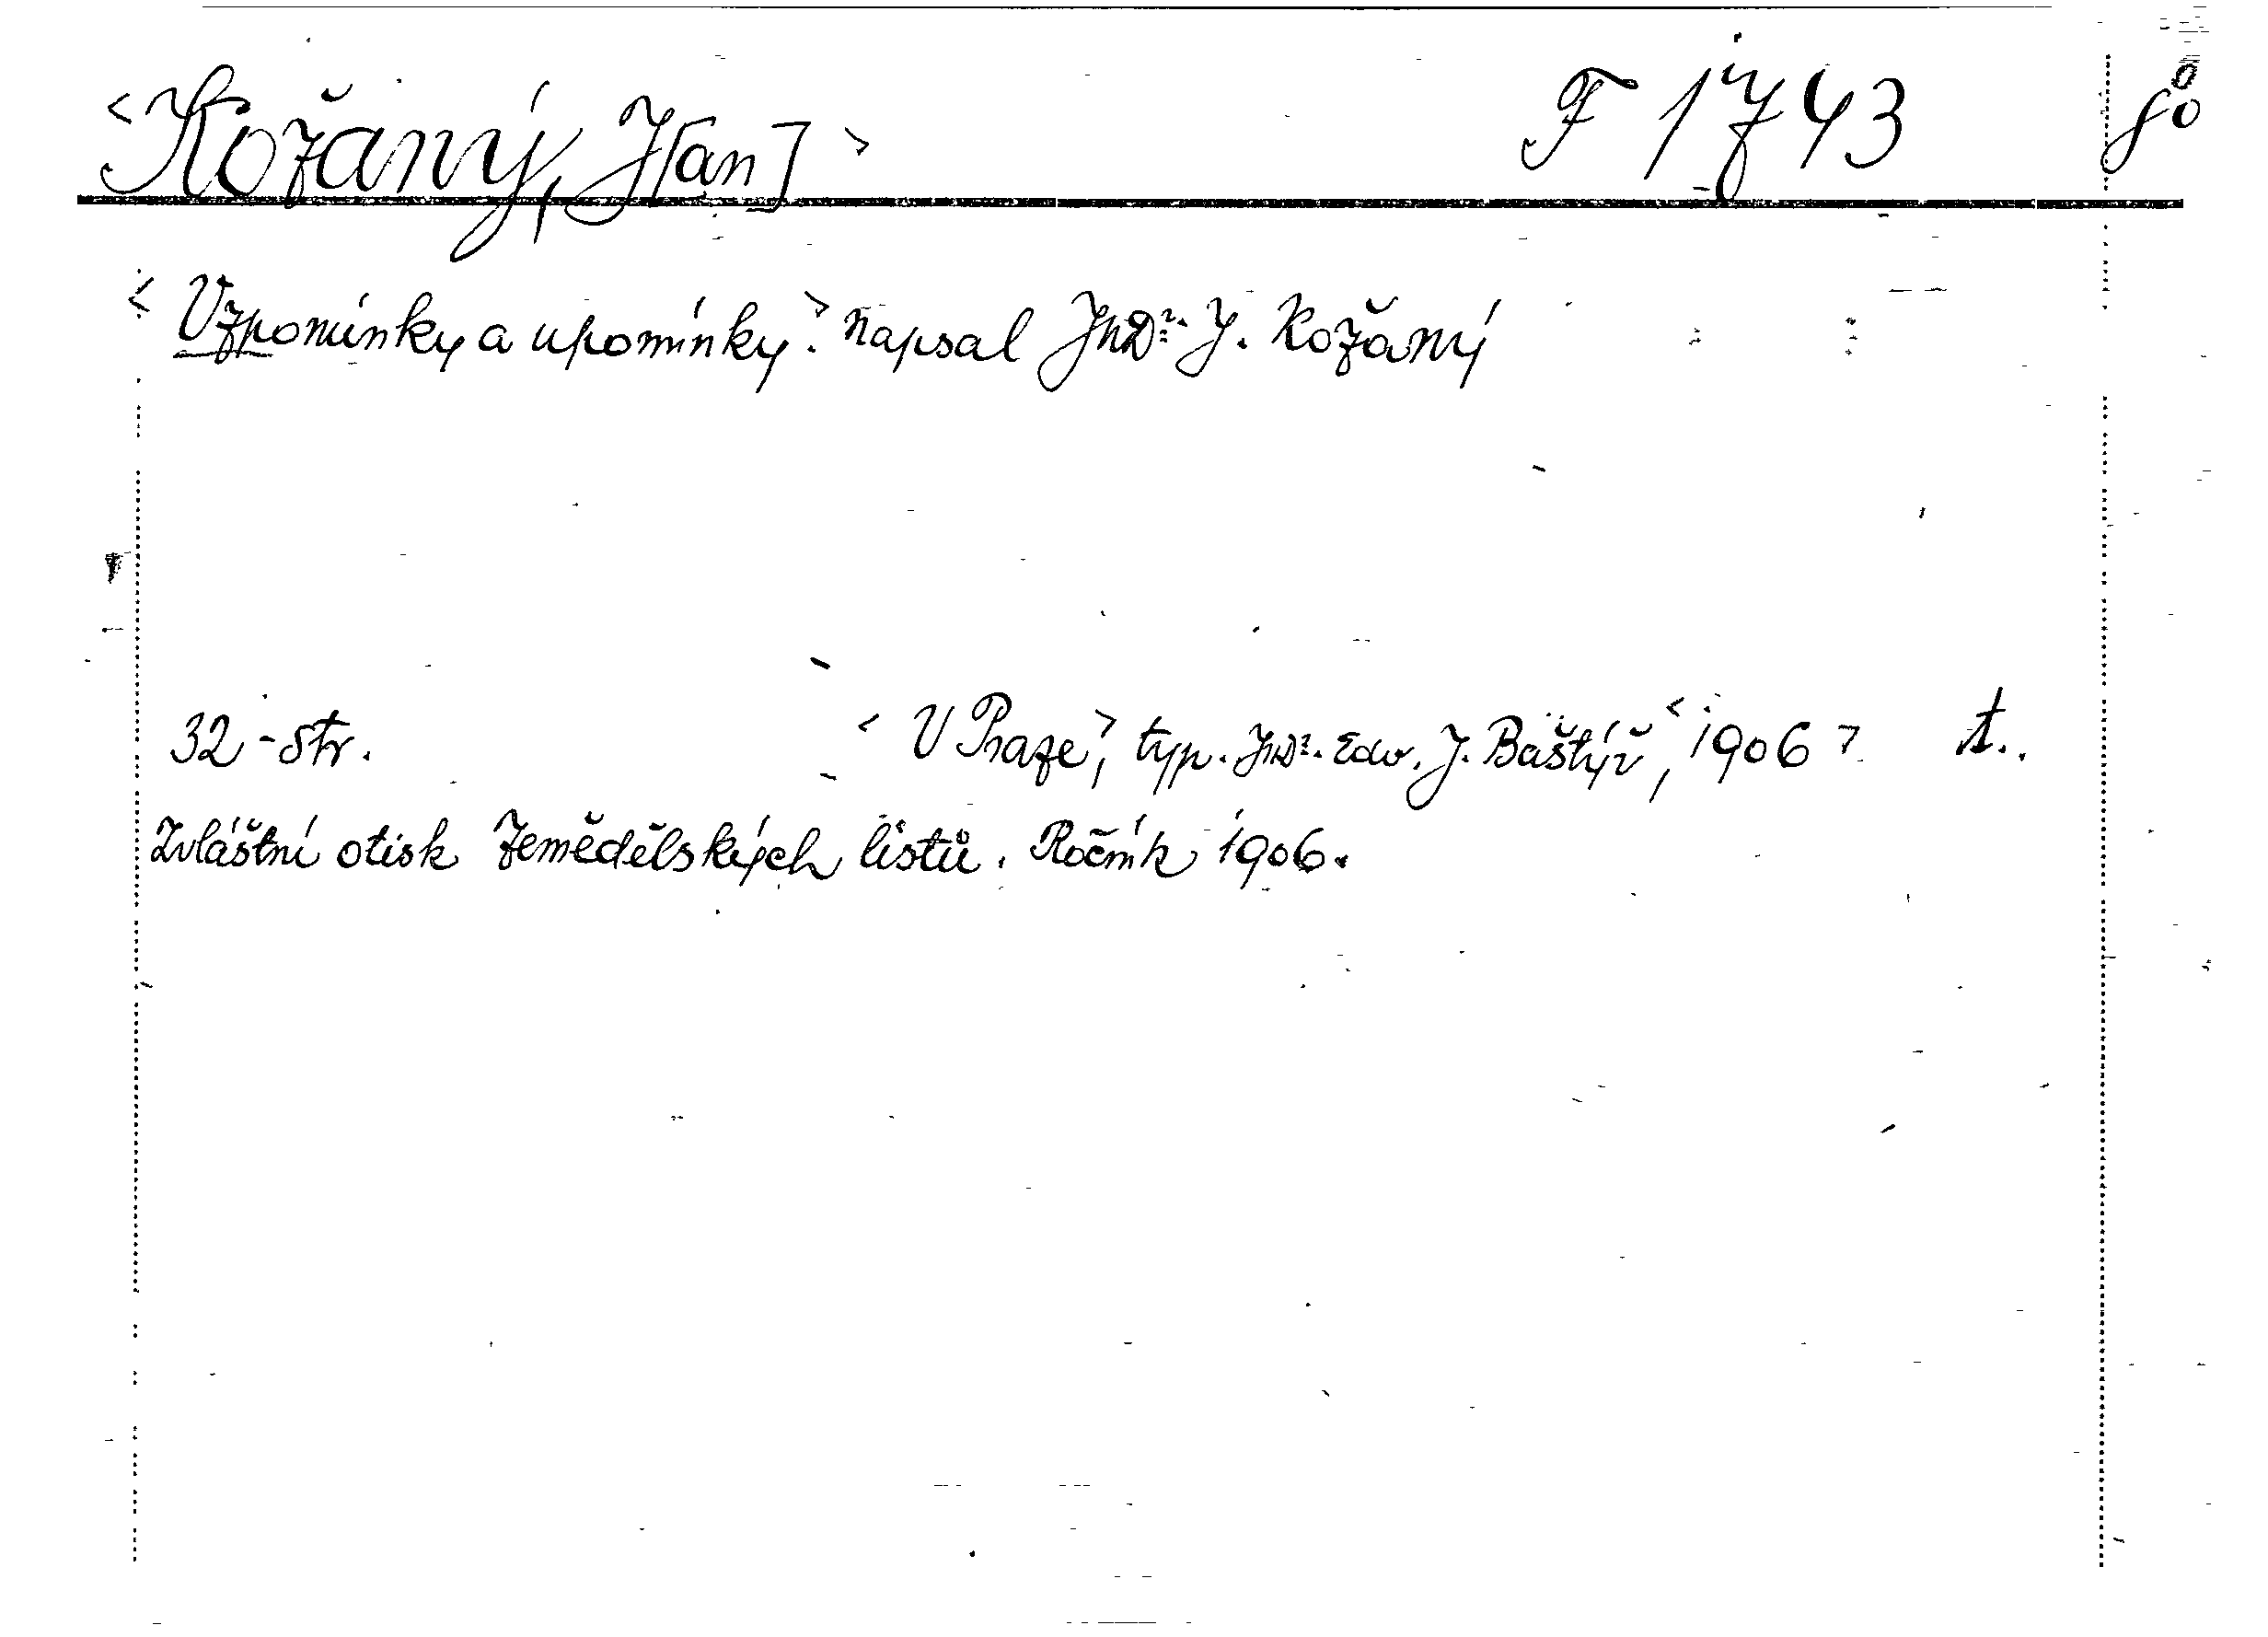 <Kožaný, J[an]> F 1743 8°
<Vzpomínky a upomínky.> Napsal JUDr. J. Kožaný
32 - str. <V Praze>, typ. JUDr. Edv. J. Baštýř, <1906> č..
Zvláštní otisk Zemědělských listů. Ročník 1906.